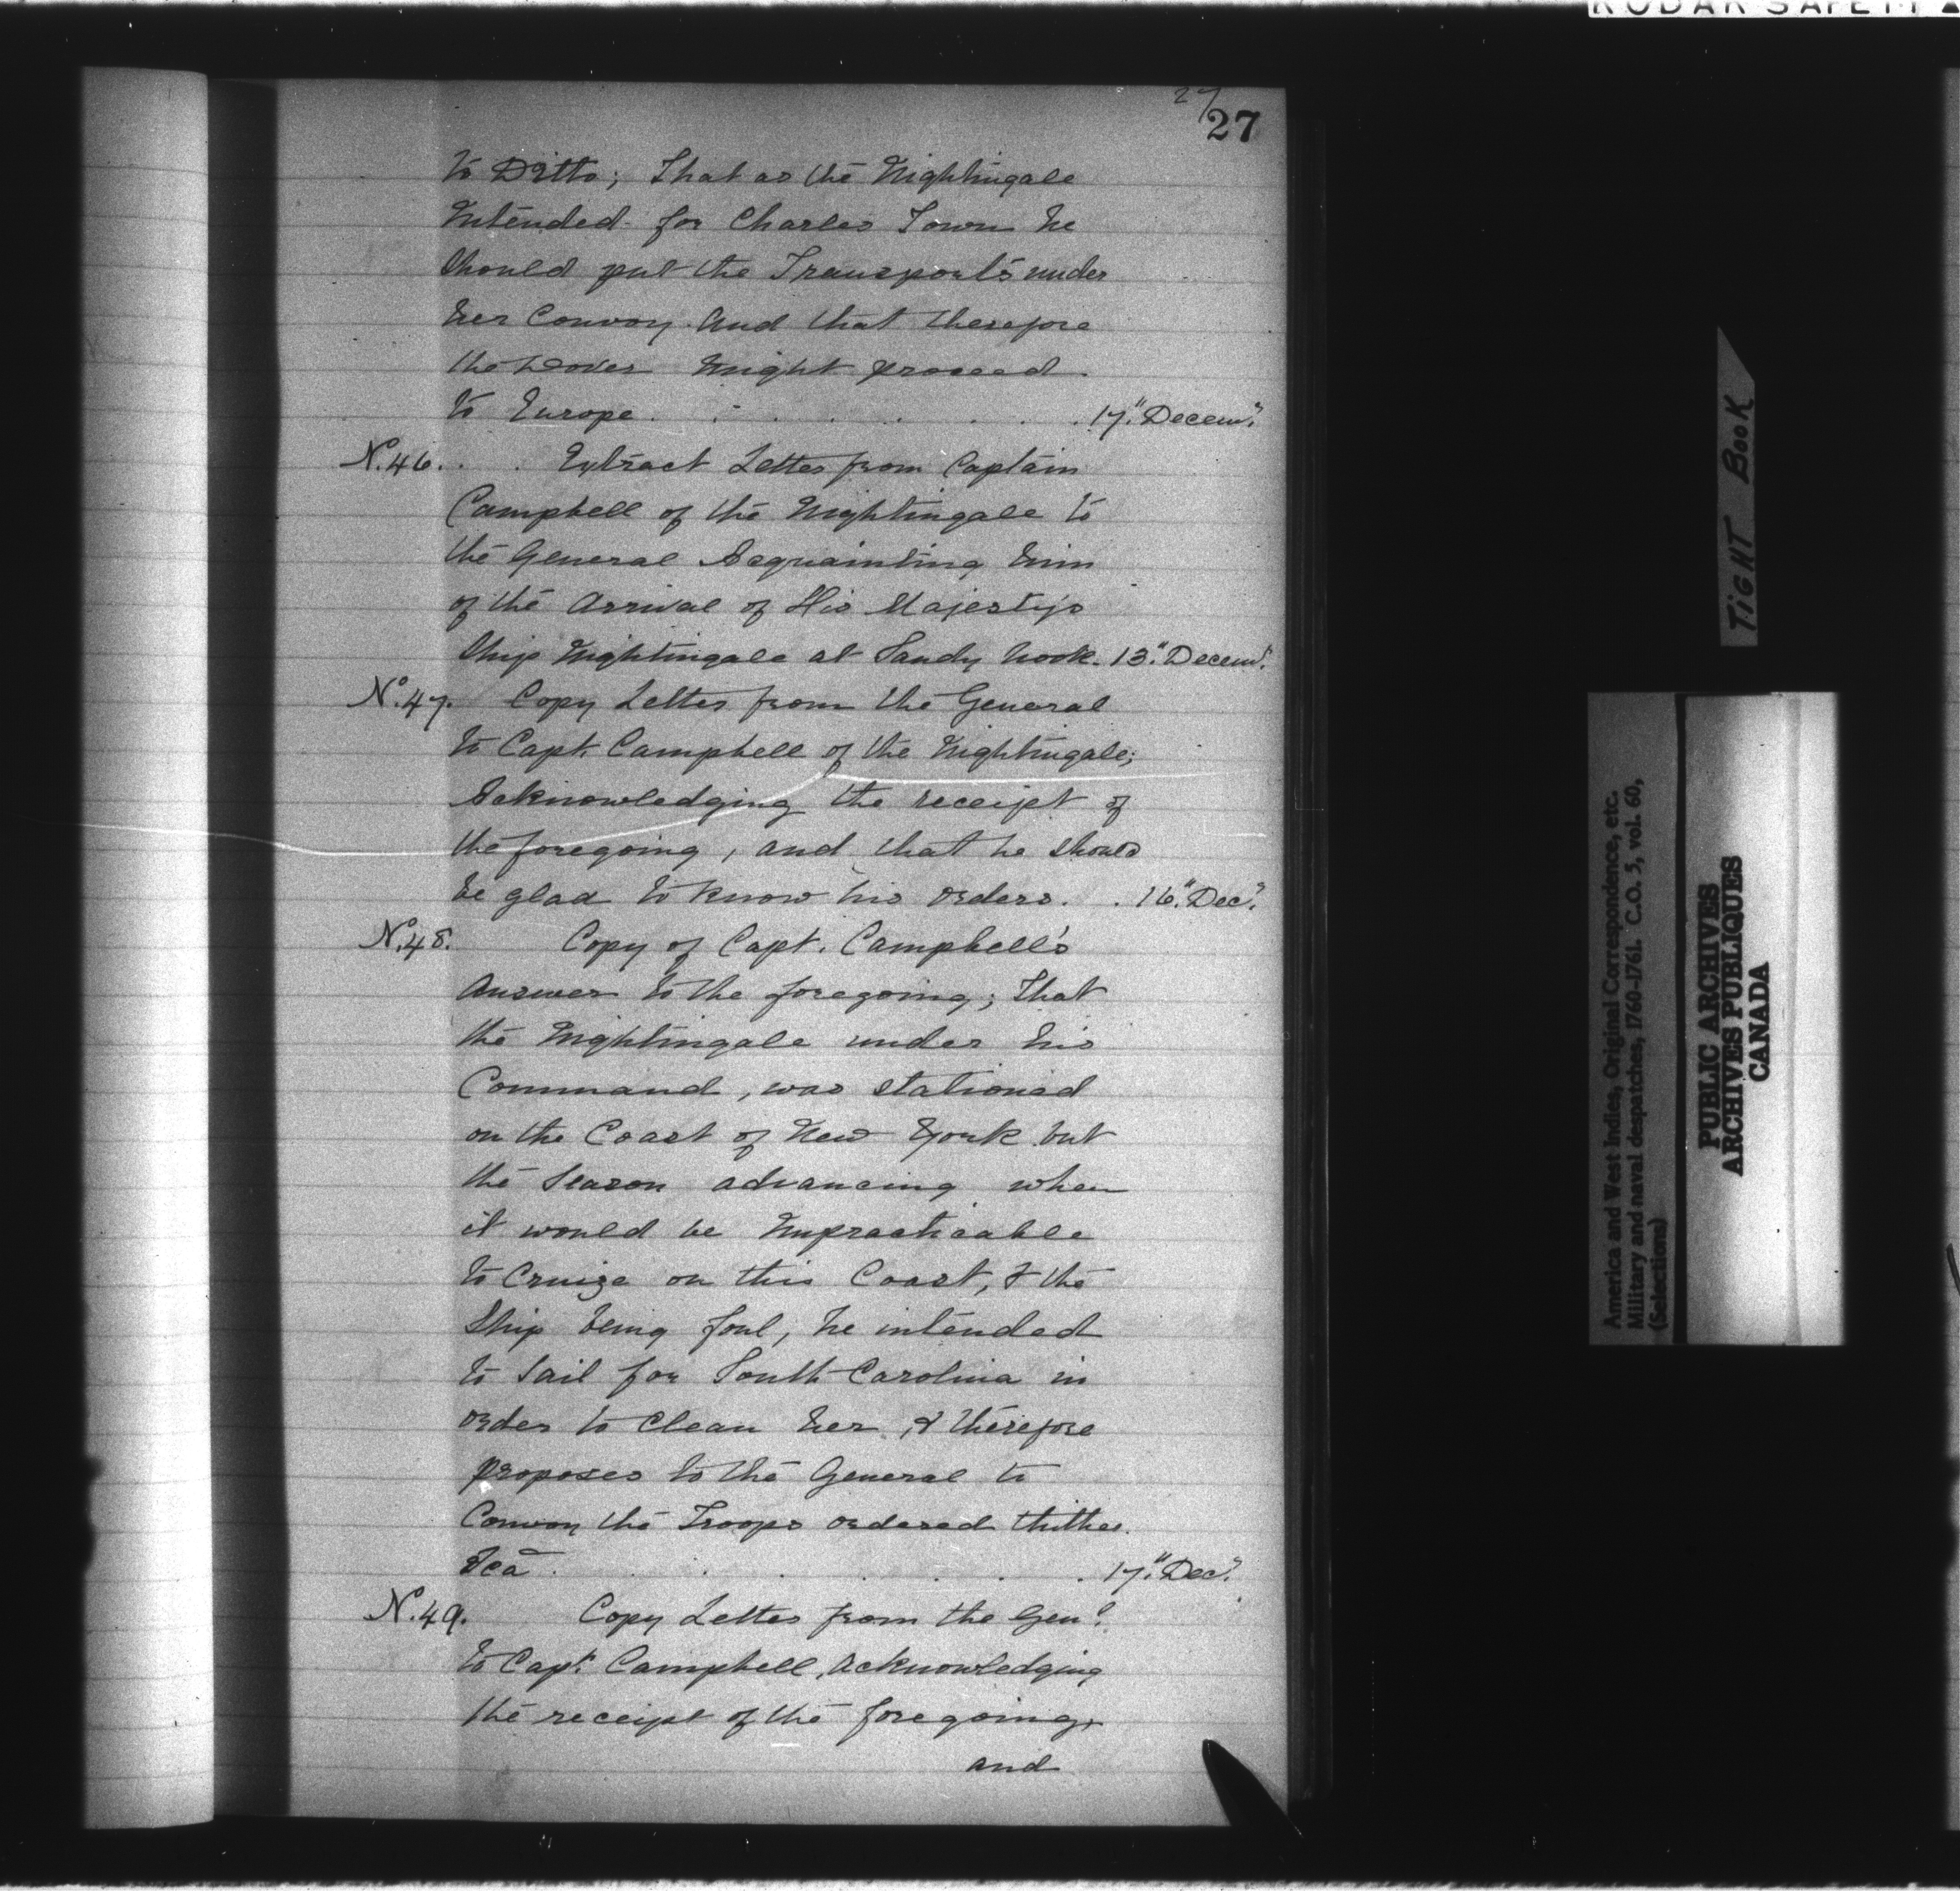 KODAK SAFETY
27
27
to Ditto; That as the Nightingale
Intended for Charles Town he
should put the Transports under
her Convoy. And that therefore
the Dover might proceed
to Europe . . . . . . . 17." Decem.r
N.46. . . Extract Letter from Captain
Campbell of the Nightingale to
the General Acquainting him
of the Arrival of His Majesty's
Ship Nightingale at Sandy hook. 13." Decem.r
No.47. Copy Letter from the General
to Capt Campbell of the Nightingale;
Acknowledging the receipt of
the foregoing, and that he should
be glad to know his orders. . 16." Dec.r
No.48. Copy of Capt. Campbell's
Answer to the foregoing; That
the Nightingale under his
Command, was stationed
on the Coast of New York but
the Season advancing when
it would be Impracticable
to Cruize on this Coast, & the
Ship being foul, he intended
to Sail for South-Carolina in
order to Clean her, & therefore
proposes to the General to
Convoy the Troops ordered thither.
&ca . . . . . . 17." Dec.r
No.49. Copy Letter from the Gen.l
to Capt. Campbell, Acknowledging
the receipt of the foregoing,
and
TIGHT BOOK
America and West Indies, Original Correspondence, etc.
Military and naval despatches, 1760-1761. C.O. 5, vol. 60,
(Selections)
PUBLIC ARCHIVES
ARCHIVES PUBLIQUES
CANADA